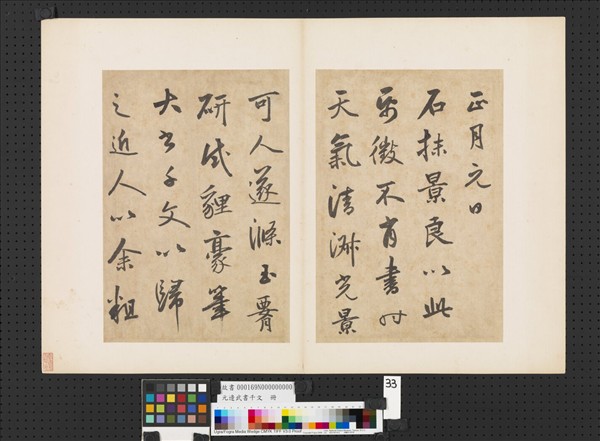 正月元日
石抹景良以此
帋徵不肖書時
天氣清淑光景
可人遂滌玉
研試貍豪筆
大書千文以歸
之近人以余粗
33
故書 000169N000000000
元邊武書千文 冊